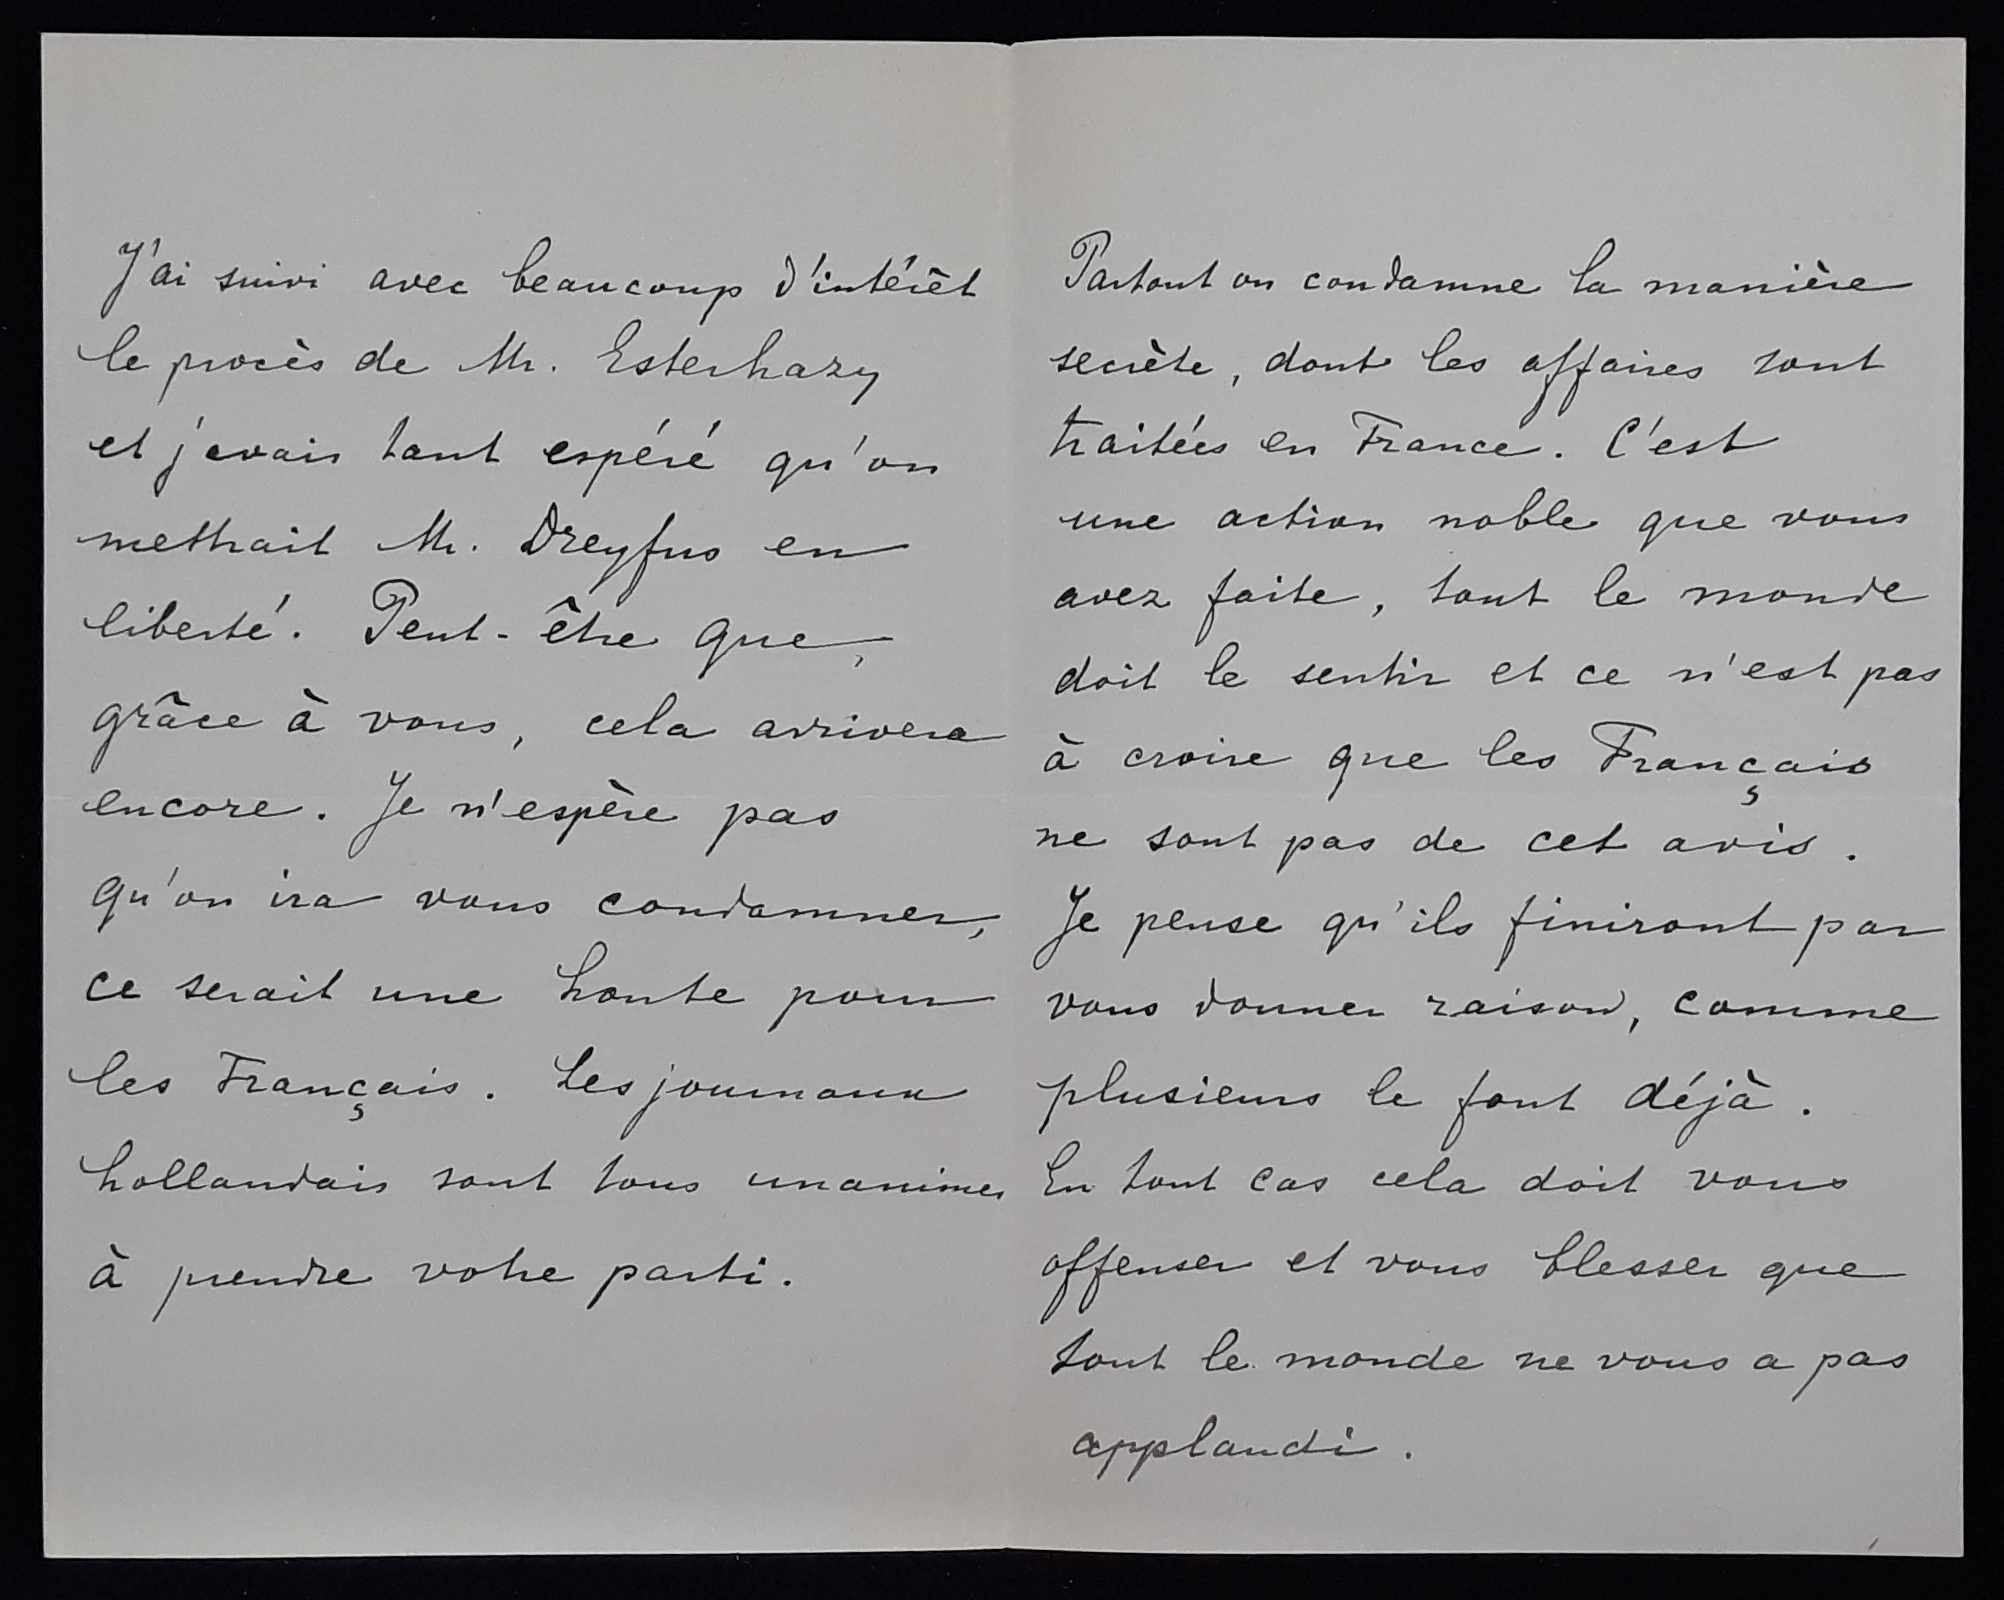 J'ai suivi avec beaucoup d'intérêt
le procès de Mr. Esterhazy
et j'avais tant espéré qu'on
mettrait Mr. Dreyfus en
liberté. Peut-être que,
grâce à vous, cela arrivera
encore. Je n'espère pas
qu'on ira vous condamner,
ce serait une honte pour
les Français. Les journaux
hollandais sont tous unanimes
à prendre votre parti.
Partout on condamne la manière
secrète, dont les affaires sont
traitées en France. C'est
une action noble que vous
avez faite, tout le monde
doit le sentir et ce n'est pas
à croire que les Français
ne sont pas de cet avis.
Je pense qu'ils finiront par
vous donner raison, comme
plusieurs le font déjà.
En tout cas cela doit vous
offenser et vous blesser que
tout le monde ne vous a pas
applaudi.